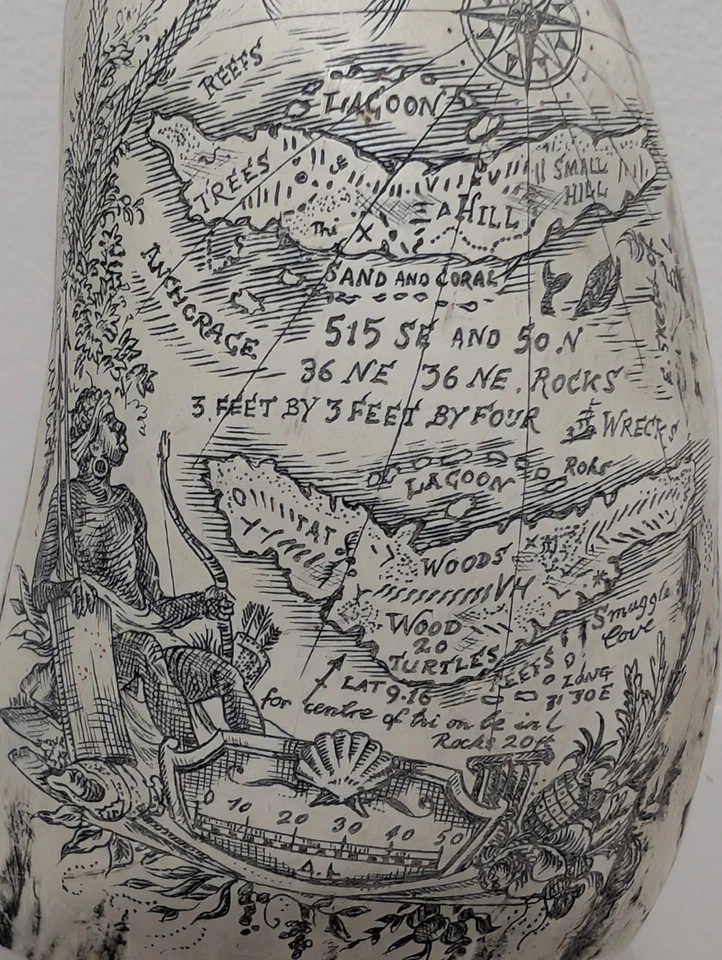 REEFS
LAGOON
TREES
SMALL
HILL
HILL
The
X
ANCHORAGE
SAND AND CORAL
515 SE AND 50.N
36 NE 36 NE. ROCKS
3 FEET BY 3 FEET BY FOUR
WRECKS
LAGOON
Roks
WOODS
VH
WOOD
20
TURTLES
Smuggle
Cove
REEFS
LONG
30E
LAT 9.16
for centre of
Rocks 20ft
0 10 20 30 40 50